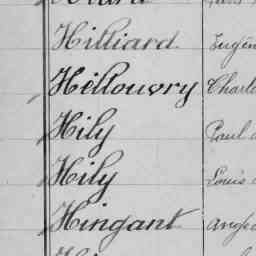 Hilliard. Eugèn
Hillouvry Charl
Hily Paul
Hily Louis
Hingant Ange